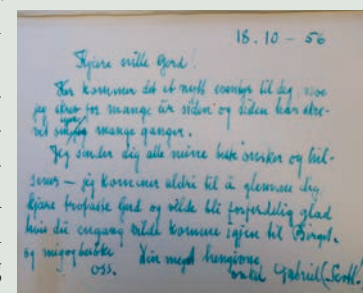 18.10 – 56
Kjære snille Gerd!
Her kommer det et nytt eventyr til deg, noe
jeg skrev for mange år siden og siden har skre-
vet om mange ganger.
Jeg sender dig alle mine beste ønsker og hil-
sener – jeg kommer aldri til å glemme dig
kjære Gerd og vilde bli forferdelig glad
hvis du engang vilde komme igjen til
og mig og besøke din meget hengivne
oss. onkel Gabriel (Scott)